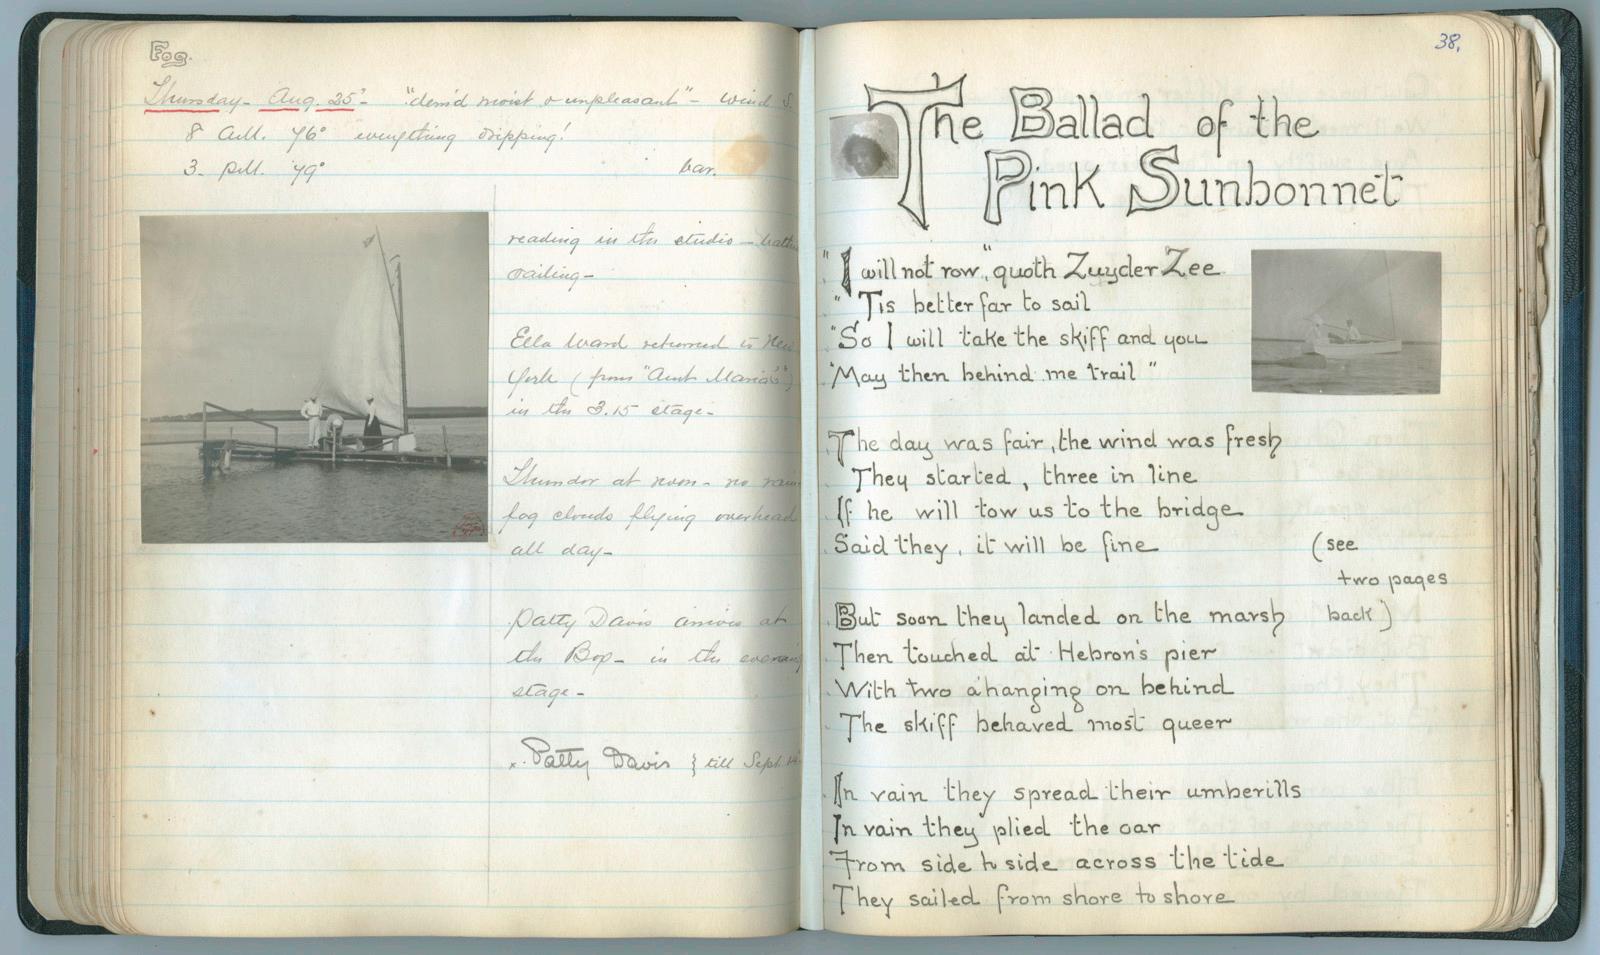 Fog.
Thursday - Aug. 25 - "dem'd moist & unpleasant" - wind S.
8 A.M. 76° everything dripping!
3 P.M. 79° bar.
reading in the studio -
sailing -
Ella Ward returned to New
York (from "Aunt Maria's")
in the 3.15 stage -
Thunder at noon - no rain
fog clouds flying overhead
all day -
Patty Davis arrives at
the Box - in the evening
stage -
x. Patty Davis } till Sept. 14
38.
The Ballad of the
Pink Sunbonnet
"I will not row," quoth Zuyder Zee
"Tis better far to sail
"So I will take the skiff and you
"May then behind me trail"
The day was fair, the wind was fresh
They started, three in line
If he will tow us to the bridge
Said they, it will be fine
(see
two pages
back)
But soon they landed on the marsh
Then touched at Hebron's pier
With two a'hanging on behind
The skiff behaved most queer
In vain they spread their umberills
In vain they plied the oar
From side to side across the tide
They sailed from shore to shore